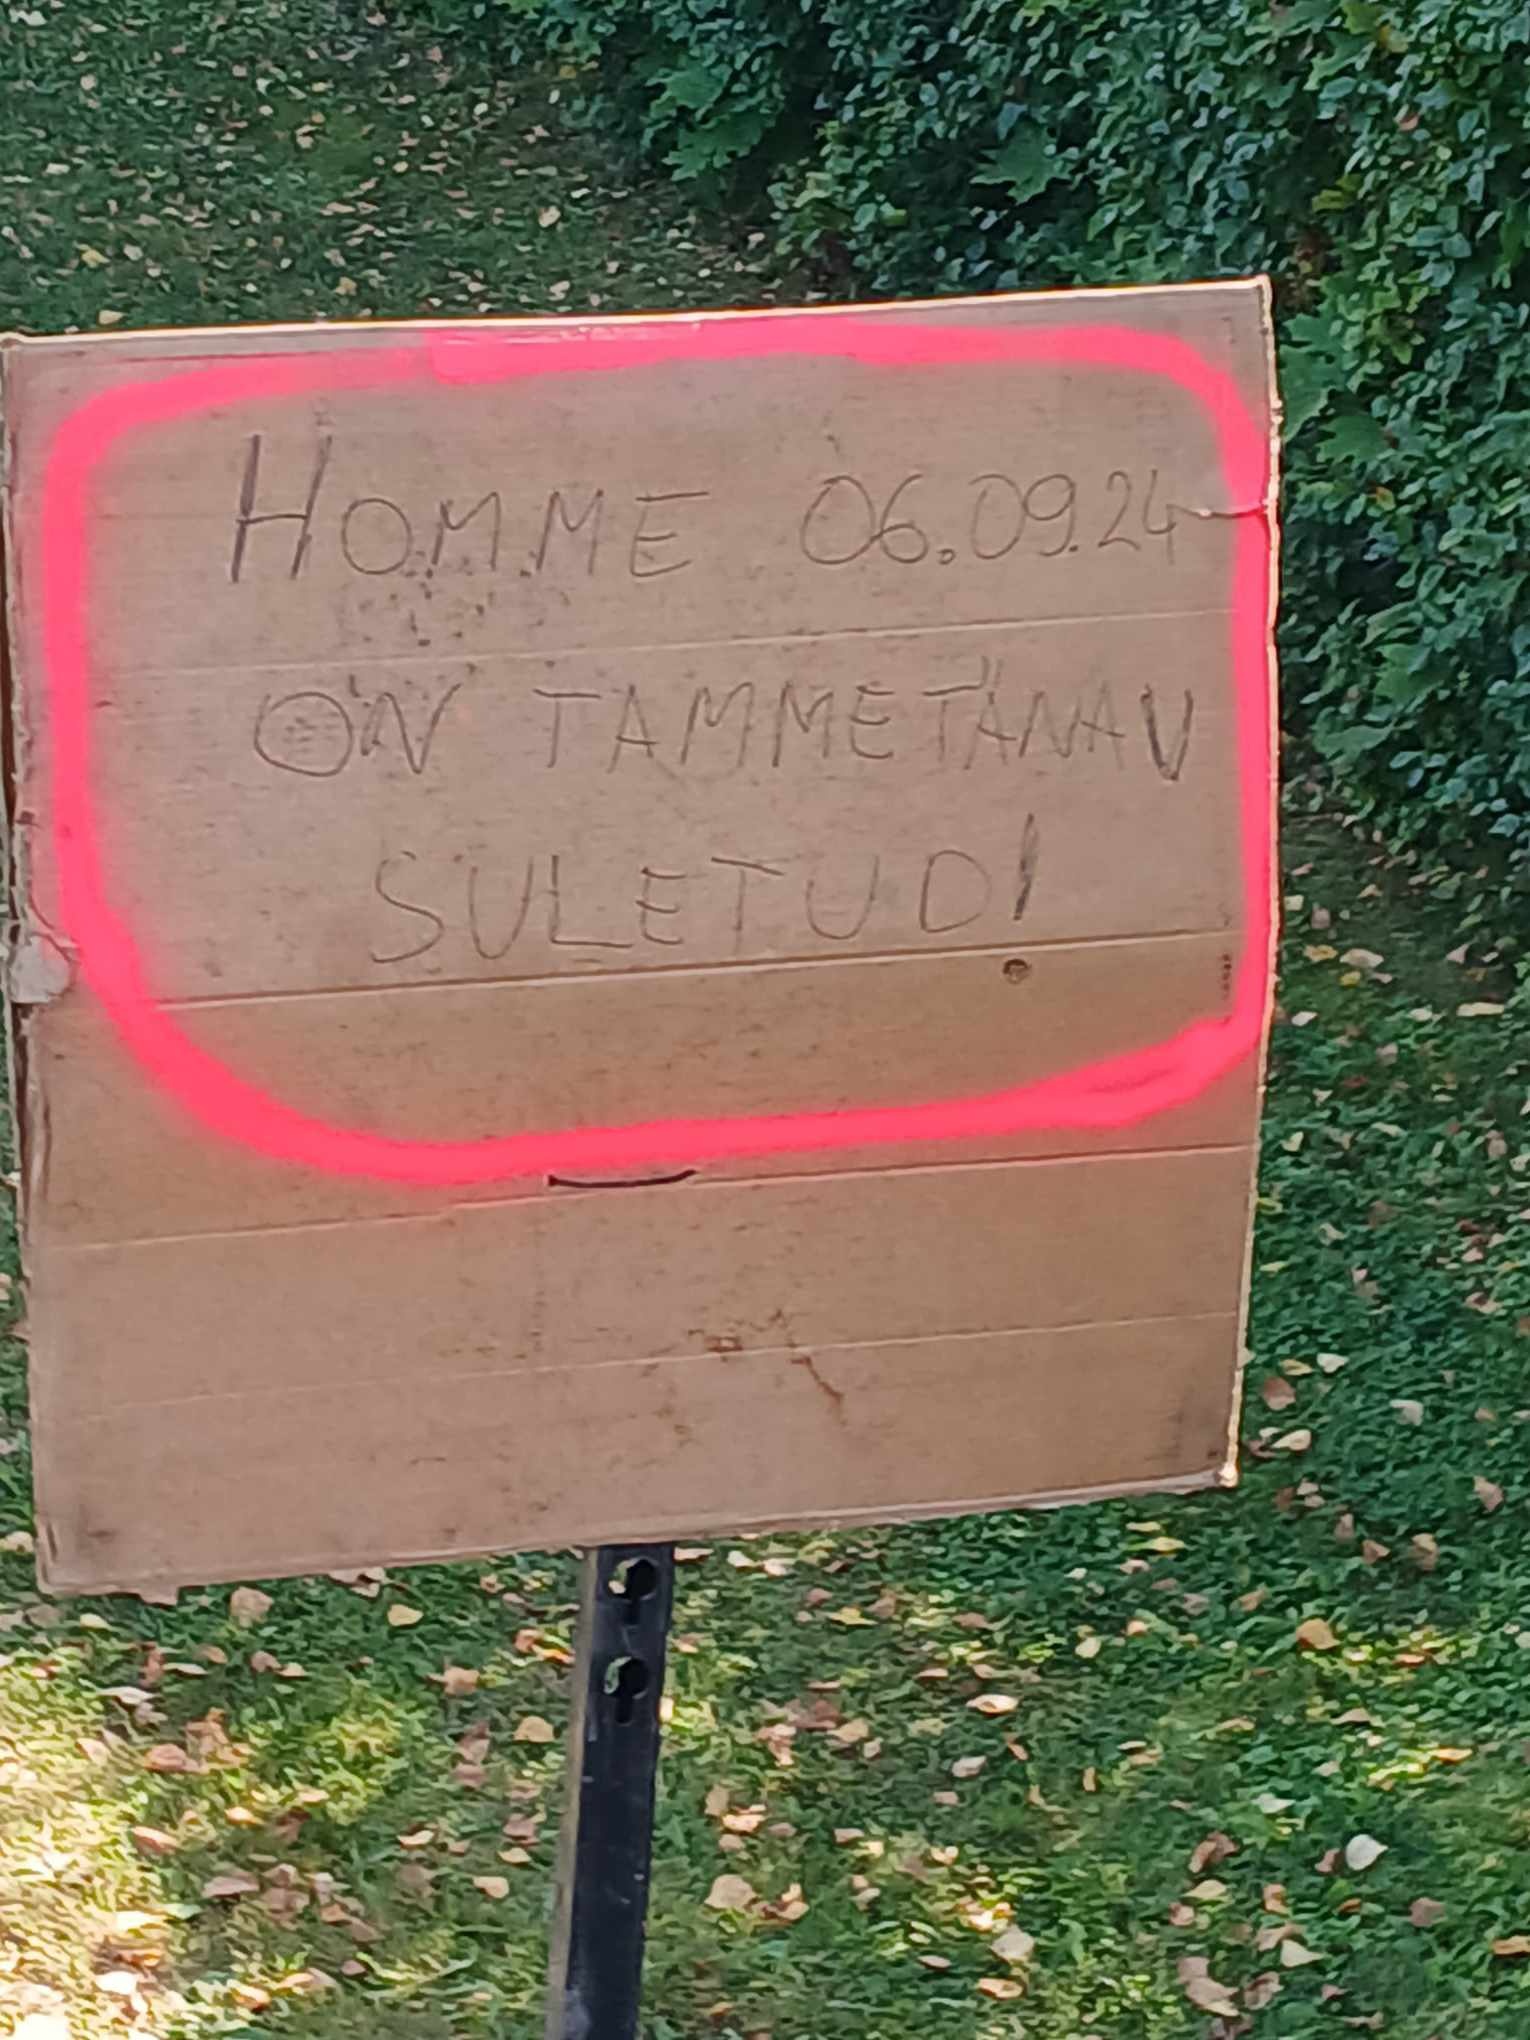 HOMME 06.09.24
ON TAMMETÄNAV
SULETUD!